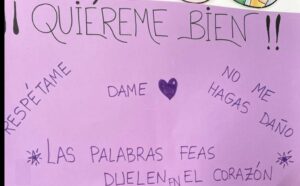 ¡QUIÉREME BIEN!!
RESPÉTAME
DAME ♥
NO ME
HAGAS DAÑO
*LAS PALABRAS FEAS
DUELEN EN EL CORAZÓN*